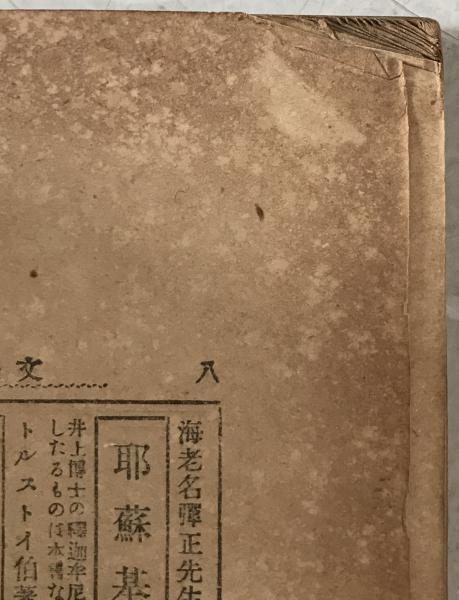 八
文
海老名彈正先生
耶蘇基
井上博士の釋迦牟尼
したるものは本書な
トルストイ伯著